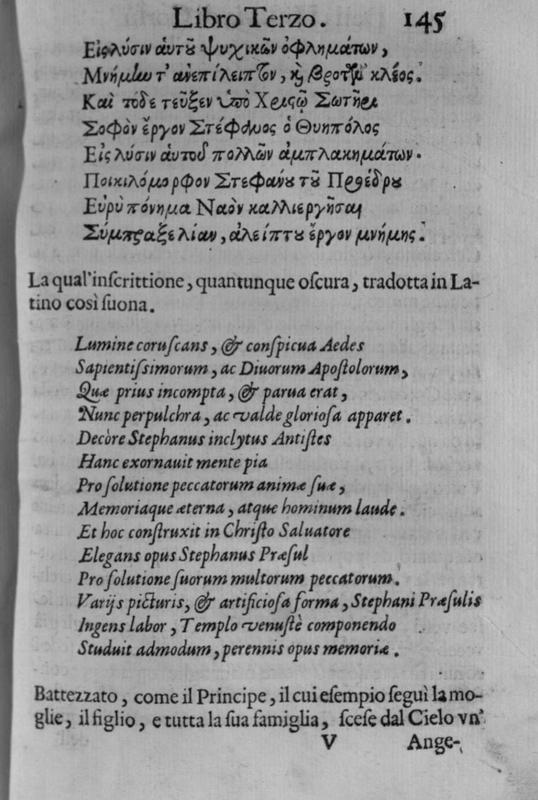 Libro Terzo. 145
Εἰς λύσιν αὑτοῦ ψυχικῶν ὀφλημάτων,
Μνήμίω τ' ἀνεπίλειπτον, κὴ βροτῶν κλέος.
Καὶ τόδε τεῦξεν ὑπὸ Χριςῷ Σωτῆρι
Σοφὸν ἔργον Στέφανος ὁ Θυηπόλος
Εἰς λύσιν αὑτοῦ πολλῶν ἀμπλακημάτων.
Ποικιλόμορφον Στεφάνου τοῦ Προέδρου
Εὐρὺ πόνημα Ναὸν καλλιεργῆσαι
Σύμπραξε λίαν, ἀλείπτου ἔργον μνήμης.
La qual'inscrittione, quantunque oscura, tradotta in La-
tino così suona.
Lumine coruscans, & conspicua Aedes
Sapientissimorum, ac Diuorum Apostolorum,
Quæ prius incompta, & parua erat,
Nunc perpulchra, ac valde gloriosa apparet.
Decòre Stephanus inclytus Antistes
Hanc exornauit mente pia
Pro solutione peccatorum animæ suæ,
Memoriaque æterna, atque hominum laude.
Et hoc construxit in Christo Saluatore
Elegans opus Stephanus Præsul
Pro solutione suorum multorum peccatorum.
Varijs picturis, & artificiosa forma, Stephani Præsulis
Ingens labor, Templo venustè componendo
Studuit admodum, perennis opus memoriæ.
Battezzato, come il Principe, il cui esempio seguì la mo-
glie, il figlio, e tutta la sua famiglia, scese dal Cielo vn'
V Ange-